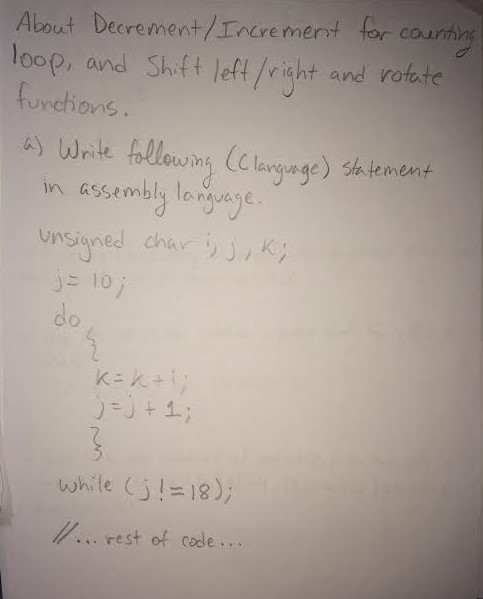 About Decrement/Increment for counting
loop, and Shift left/right and rotate
functions.
a) Write following (C language) statement
in assembly language.
unsigned char i, j, k;
j= 10;
do
{
k=k+i;
j=j+1;
}
while (j!=18);
//... rest of code...